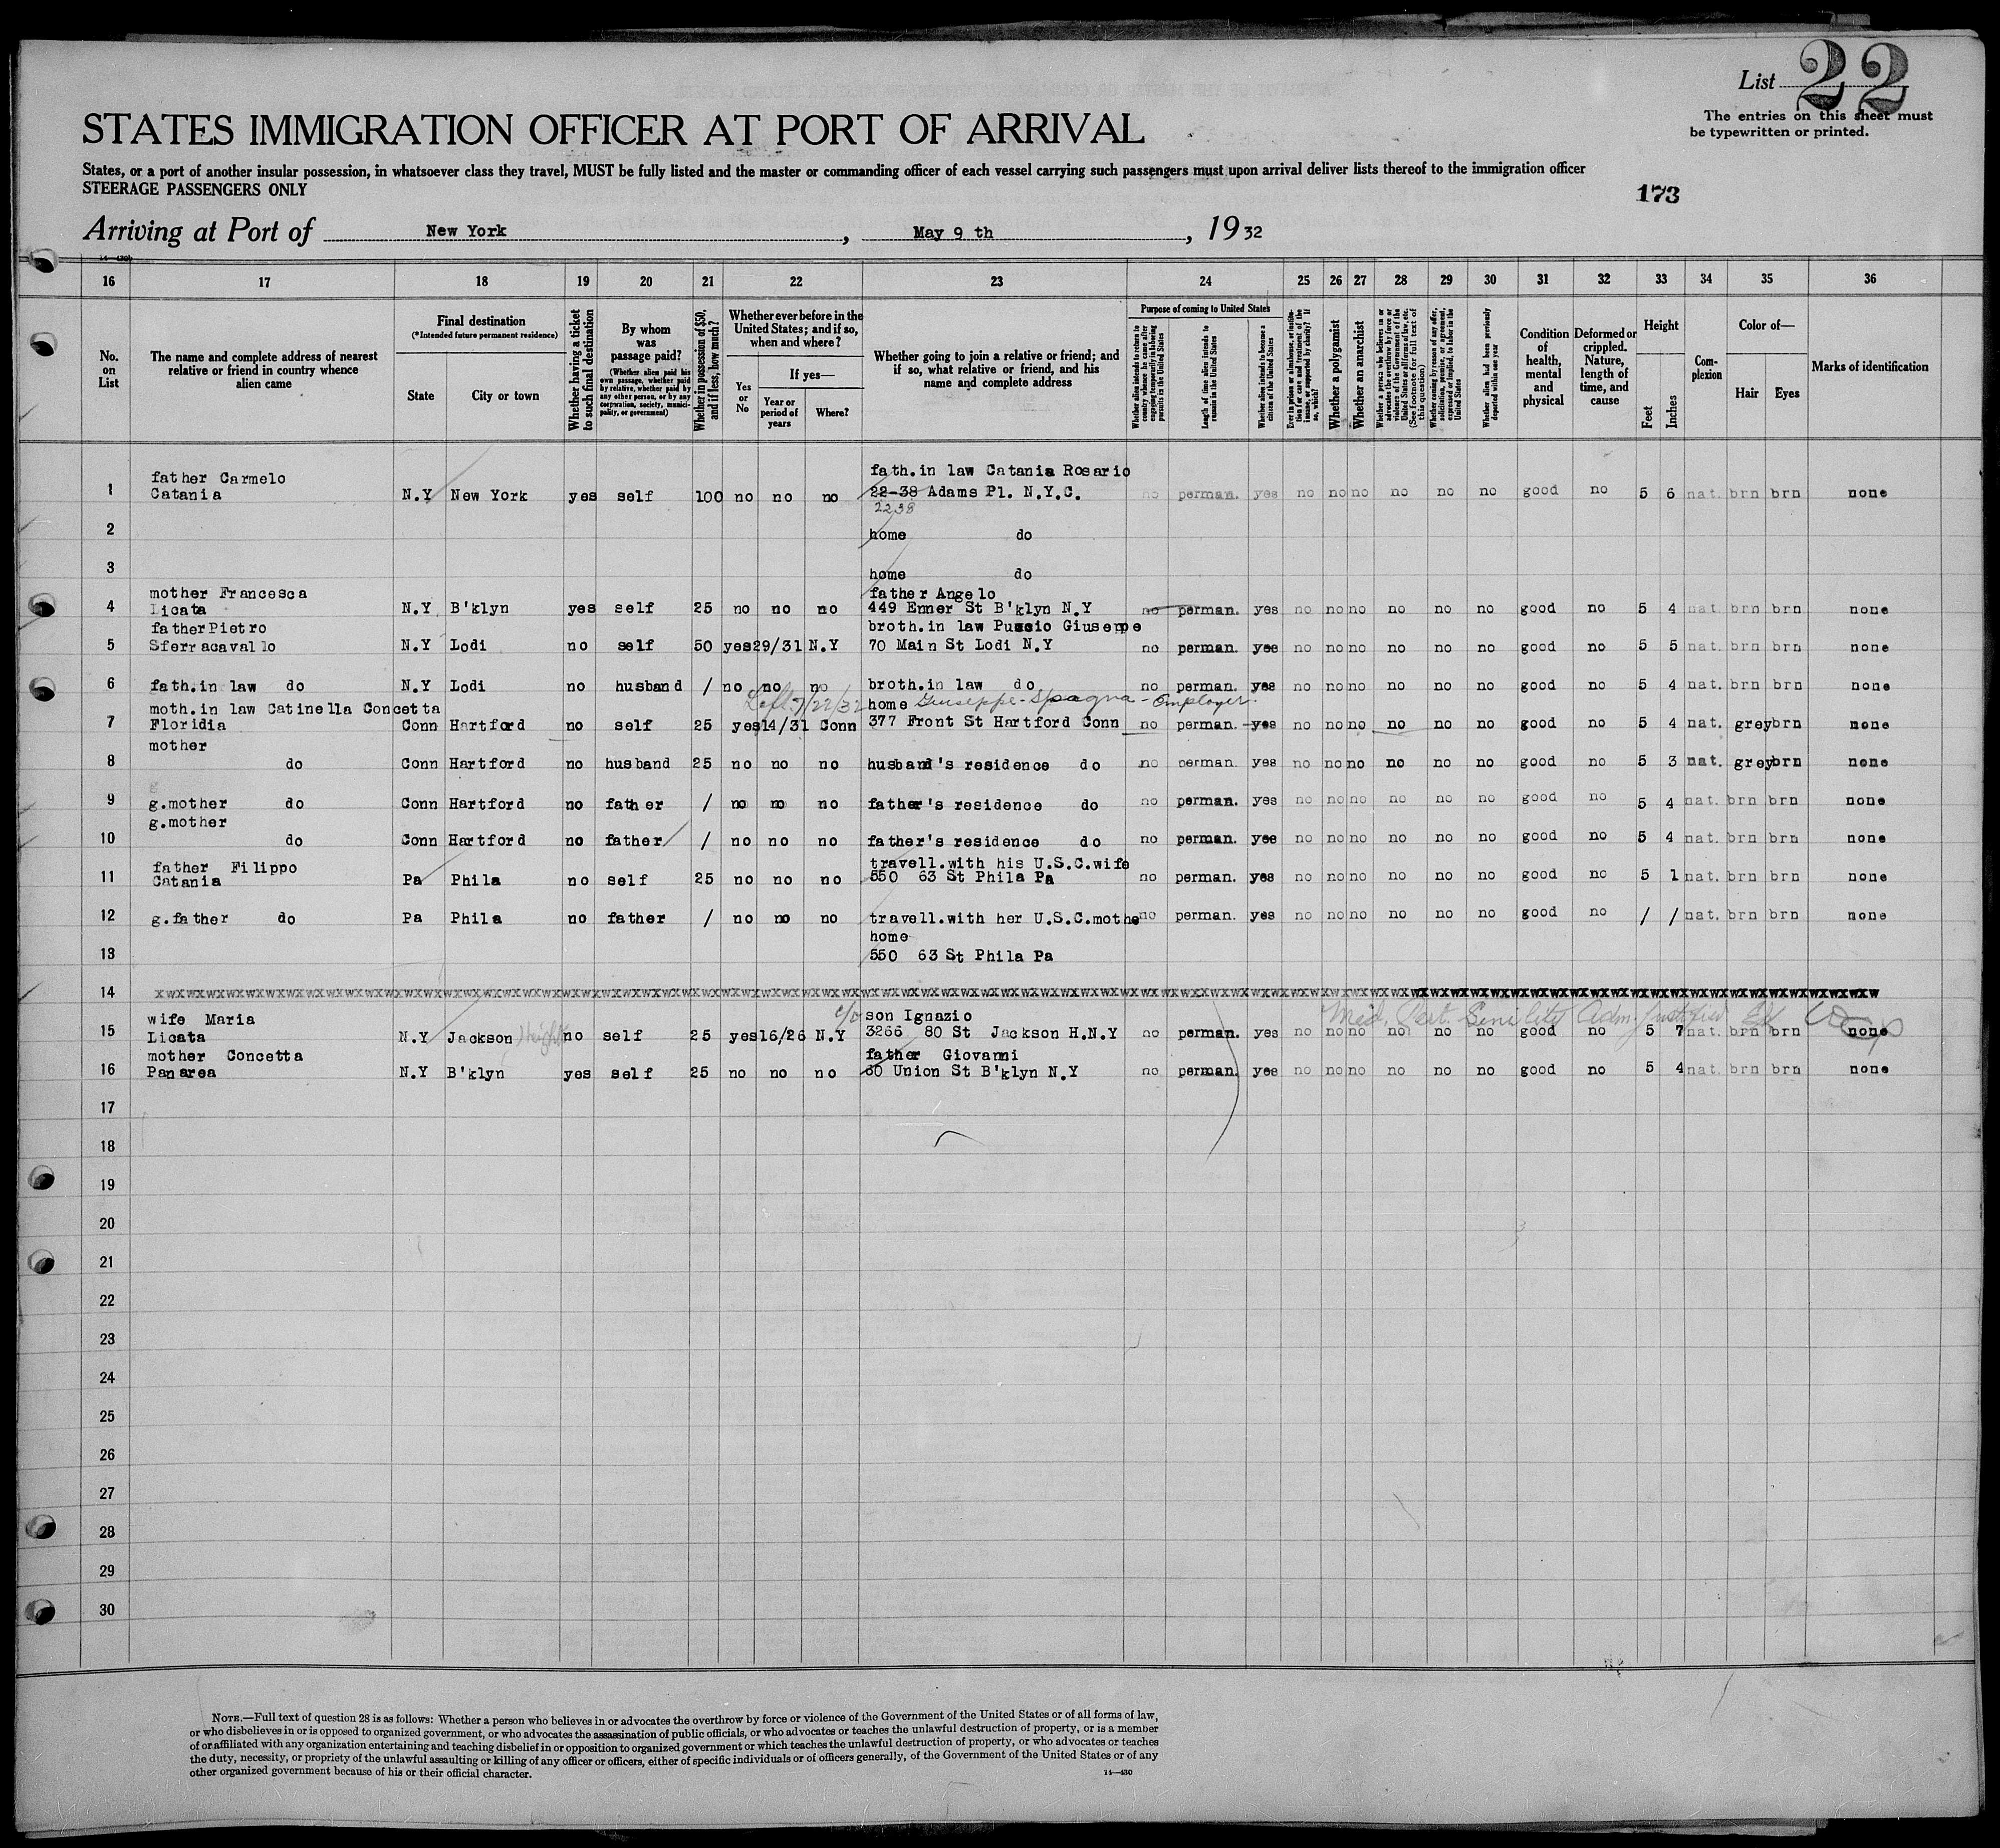 List 22
The entries on this sheet must
be typewritten or printed.
STATES IMMIGRATION OFFICER AT PORT OF ARRIVAL
States, or a port of another insular possession, in whatsoever class they travel, MUST be fully listed and the master or commanding officer of each vessel carrying such passengers must upon arrival deliver lists thereof to the immigration officer
STEERAGE PASSENGERS ONLY
173
Arriving at Port of New York, May 9 th, 1932
16 17 18 19 20 21 22 23 24 25 26 27 28 29 30 31 32 33 34 35 36
No. on List
The name and complete address of nearest relative or friend in country whence alien came
Final destination
(*Intended future permanent residence)
State
City or town
Whether having a ticket to such final destination
By whom was passage paid?
(Whether alien paid his own passage, whether paid by relative, whether paid by any other person, or by any corporation, society, municipality, or government)
Whether in possession of $50, and if less, how much?
Whether ever before in the United States; and if so, when and where?
Yes or No
If yes—
Year or period of years
Where?
Whether going to join a relative or friend; and if so, what relative or friend, and his name and complete address
Purpose of coming to United States
Whether alien intends to return to country whence he came after engaging temporarily in laboring pursuits in the United States
Length of time alien intends to remain in the United States
Whether alien intends to become a citizen of the United States
Ever in prison or almshouse, or institution for care and treatment of the insane, or supported by charity? If so, which?
Whether a polygamist
Whether an anarchist
Whether a person who believes in or advocates the overthrow by force or violence of the Government of the United States or of all forms of law, etc. (See footnote for full text of this question)
Whether coming by reason of any offer, solicitation, promise, or agreement, expressed or implied, to labor in the United States
Whether alien had been previously deported within one year
Condition of health, mental and physical
Deformed or crippled. Nature, length of time, and cause
Height
Feet
Inches
Complexion
Color of—
Hair
Eyes
Marks of identification
father Carmelo fath.in law Catania Rosario
1 Catania N.Y New York yes self 100 no no no 22-38 Adams Pl. N.Y.C. no perman. yes no no no no no no good no 5 6 nat. brn brn none
2238
2 home do
3 home do
mother Francesca father Angelo
4 Licata N.Y B'klyn yes self 25 no no no 449 Emner St B'klyn N.Y no perman. yes no no no no no no good no 5 4 nat. brn brn none
father Pietro broth.in law Puccio Giuseppe
5 Sferracavallo N.Y Lodi no self 50 yes 29/31 N.Y 70 Main St Lodi N.Y no perman. yes no no no no no no good no 5 5 nat. brn brn none
6 fath.in law do N.Y Lodi no husband / no no no broth.in law do no perman. yes no no no no no no good no 5 4 nat. brn brn none
moth.in law Catinella Concetta Left 7/22/31 home Giuseppe Spagna - Employer.
7 Floridia Conn Hartford no self 25 yes 14/31 Conn 377 Front St Hartford Conn no perman. yes no no no no no no good no 5 4 nat. grey brn none
mother
8 do Conn Hartford no husband 25 no no no husband's residence do no perman. yes no no no no no no good no 5 3 nat. grey brn none
9 g.mother do Conn Hartford no father / no no no father's residence do no perman. yes no no no no no no good no 5 4 nat. brn brn none
g.mother
10 do Conn Hartford no father / no no no father's residence do no perman. yes no no no no no no good no 5 4 nat. brn brn none
father Filippo travell.with his U.S.C.wife
11 Catania Pa Phila no self 25 no no no 550 63 St Phila Pa no perman. yes no no no no no no good no 5 1 nat. brn brn none
12 g.father do Pa Phila no father / no no no travell.with her U.S.C.mothe no perman. yes no no no no no no good no / / nat. brn brn none
home
13 550 63 St Phila Pa
14 xwxwxwxwxwxwxwxwxwxwxwxwxwxwxwxwxwxwxwxwxwxwxwxwxwxwxwxwxwxwxwxwxwxwxwxwxwxwxwxwxwxwxwxwxwxwxwxw
wife Maria c/o son Ignazio Med. Cert. Senility Adm.
15 Licata N.Y Jackson Heights no self 25 yes 16/26 N.Y 3266 80 St Jackson H.N.Y no perman. yes no no no no no no good no 5 7 nat. brn brn none
mother Concetta father Giovanni
16 Panarea N.Y B'klyn yes self 25 no no no 60 Union St B'klyn N.Y no perman. yes no no no no no no good no 5 4 nat. brn brn none
17
18
19
20
21
22
23
24
25
26
27
28
29
30
NOTE.—Full text of question 28 is as follows: Whether a person who believes in or advocates the overthrow by force or violence of the Government of the United States or of all forms of law,
or who disbelieves in or is opposed to organized government, or who advocates the assassination of public officials, or who advocates or teaches the unlawful destruction of property, or is a member
of or affiliated with any organization entertaining and teaching disbelief in or opposition to organized government or which teaches the unlawful destruction of property, or who advocates or teaches
the duty, necessity, or propriety of the unlawful assaulting or killing of any officer or officers, either of specific individuals or of officers generally, of the Government of the United States or of any
other organized government because of his or their official character.
14—430